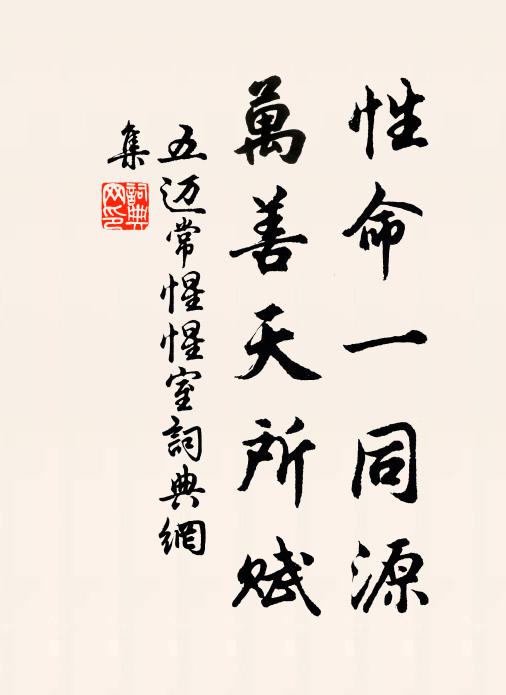 性命一同源
萬善天所赋
五迈常惺惺室詞典網
集
詞典网印